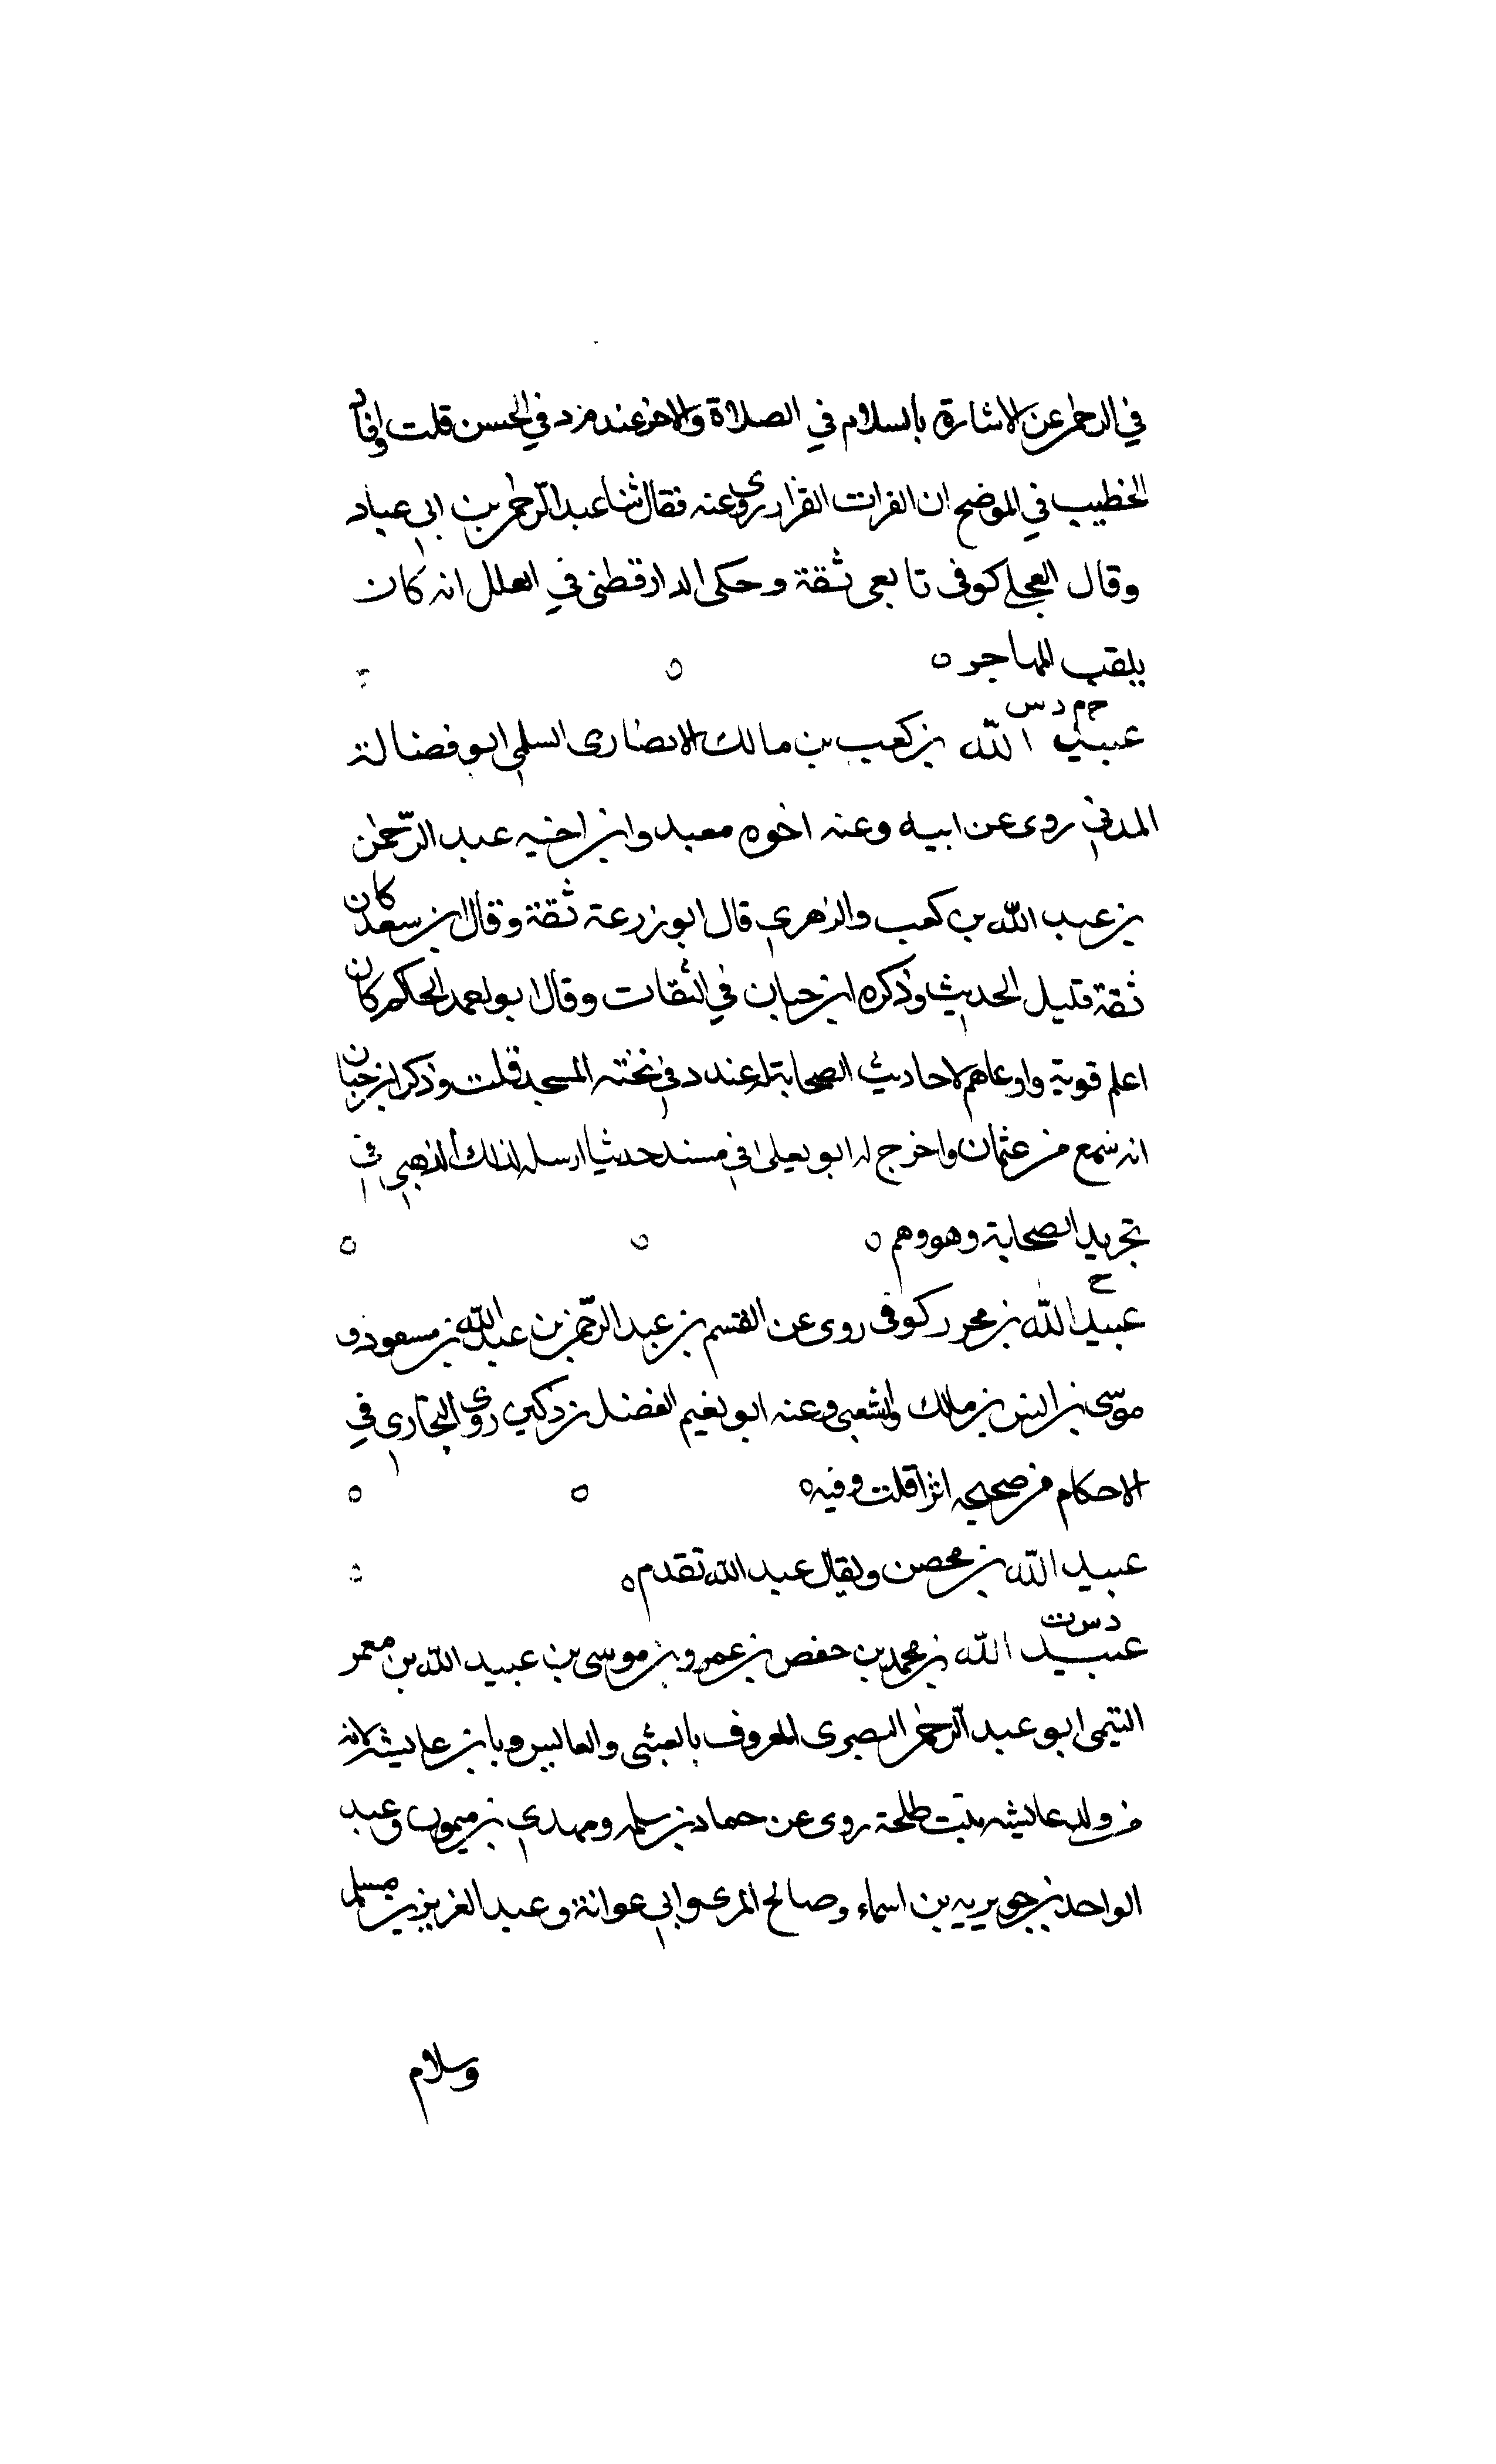 في الزجر عن الاشارة بالسلام في الصلاة والاخر عند مزد في الحسن قلت وافاد
الخطيب في الموضح ان الفرات القزاز روى عنه فقال ثنا عبد الرحمن بن ابي عباد
وقال العجلي كوفى تابعى ثقة وحكى الدارقطنى في العلل انه كان
يلقب المهاجر ه
خ م د س
عبيد الله بن كعب بن مالك الانصارى السلمي ابو فضالة
المدني روى عن ابيه وعنه اخوه معبد وابن اخيه عبد الرحمن
بن عبد الله بن كعب والزهري قال ابو زرعة ثقة وقال ابن سعد كان
ثقة قليل الحديث وذكره ابن حبان في الثقات وقال ابو احمد الحاكم كان
اعلم قومه واوعاهم لاحاديث الصحابة له عند د في نخته المسجد قلت وذكر ابن حبان
انه سمع من عثمان واخرج له ابو يعلى في مسند حديثا ارسله لذلك الذهبي في
تجريد الصحابة وهو وهم ه
خ
عبيد الله بن محرر كوفى روى عن القسم بن عبد الرحمن بن عبد الله بن مسعود و
موسى بن انس بن مالك والشعبى وعنه ابو نعيم الفضل بن دكين روى البخاري في
الاحكام من صحيحه اثرا قلت وفيه ه
عبيد الله بن محصن ويقال عبد الله تقدم ه
د س ت
عبيد الله بن محمد بن حفص بن عمر وبن موسى بن عبيد الله بن معمر
التيمى ابو عبد الرحمن البصرى المعروف بالعيشى والعايشى وبابن عايشه لانه
من ولد عايشه بنت طلحة روى عن حماد بن سلمه ومهدي بن ميمون وعبد
الواحد بن جويريه بن اسماء وصالح المرى وابي عوانة وعبد العزيز بن مسلم
وسلام